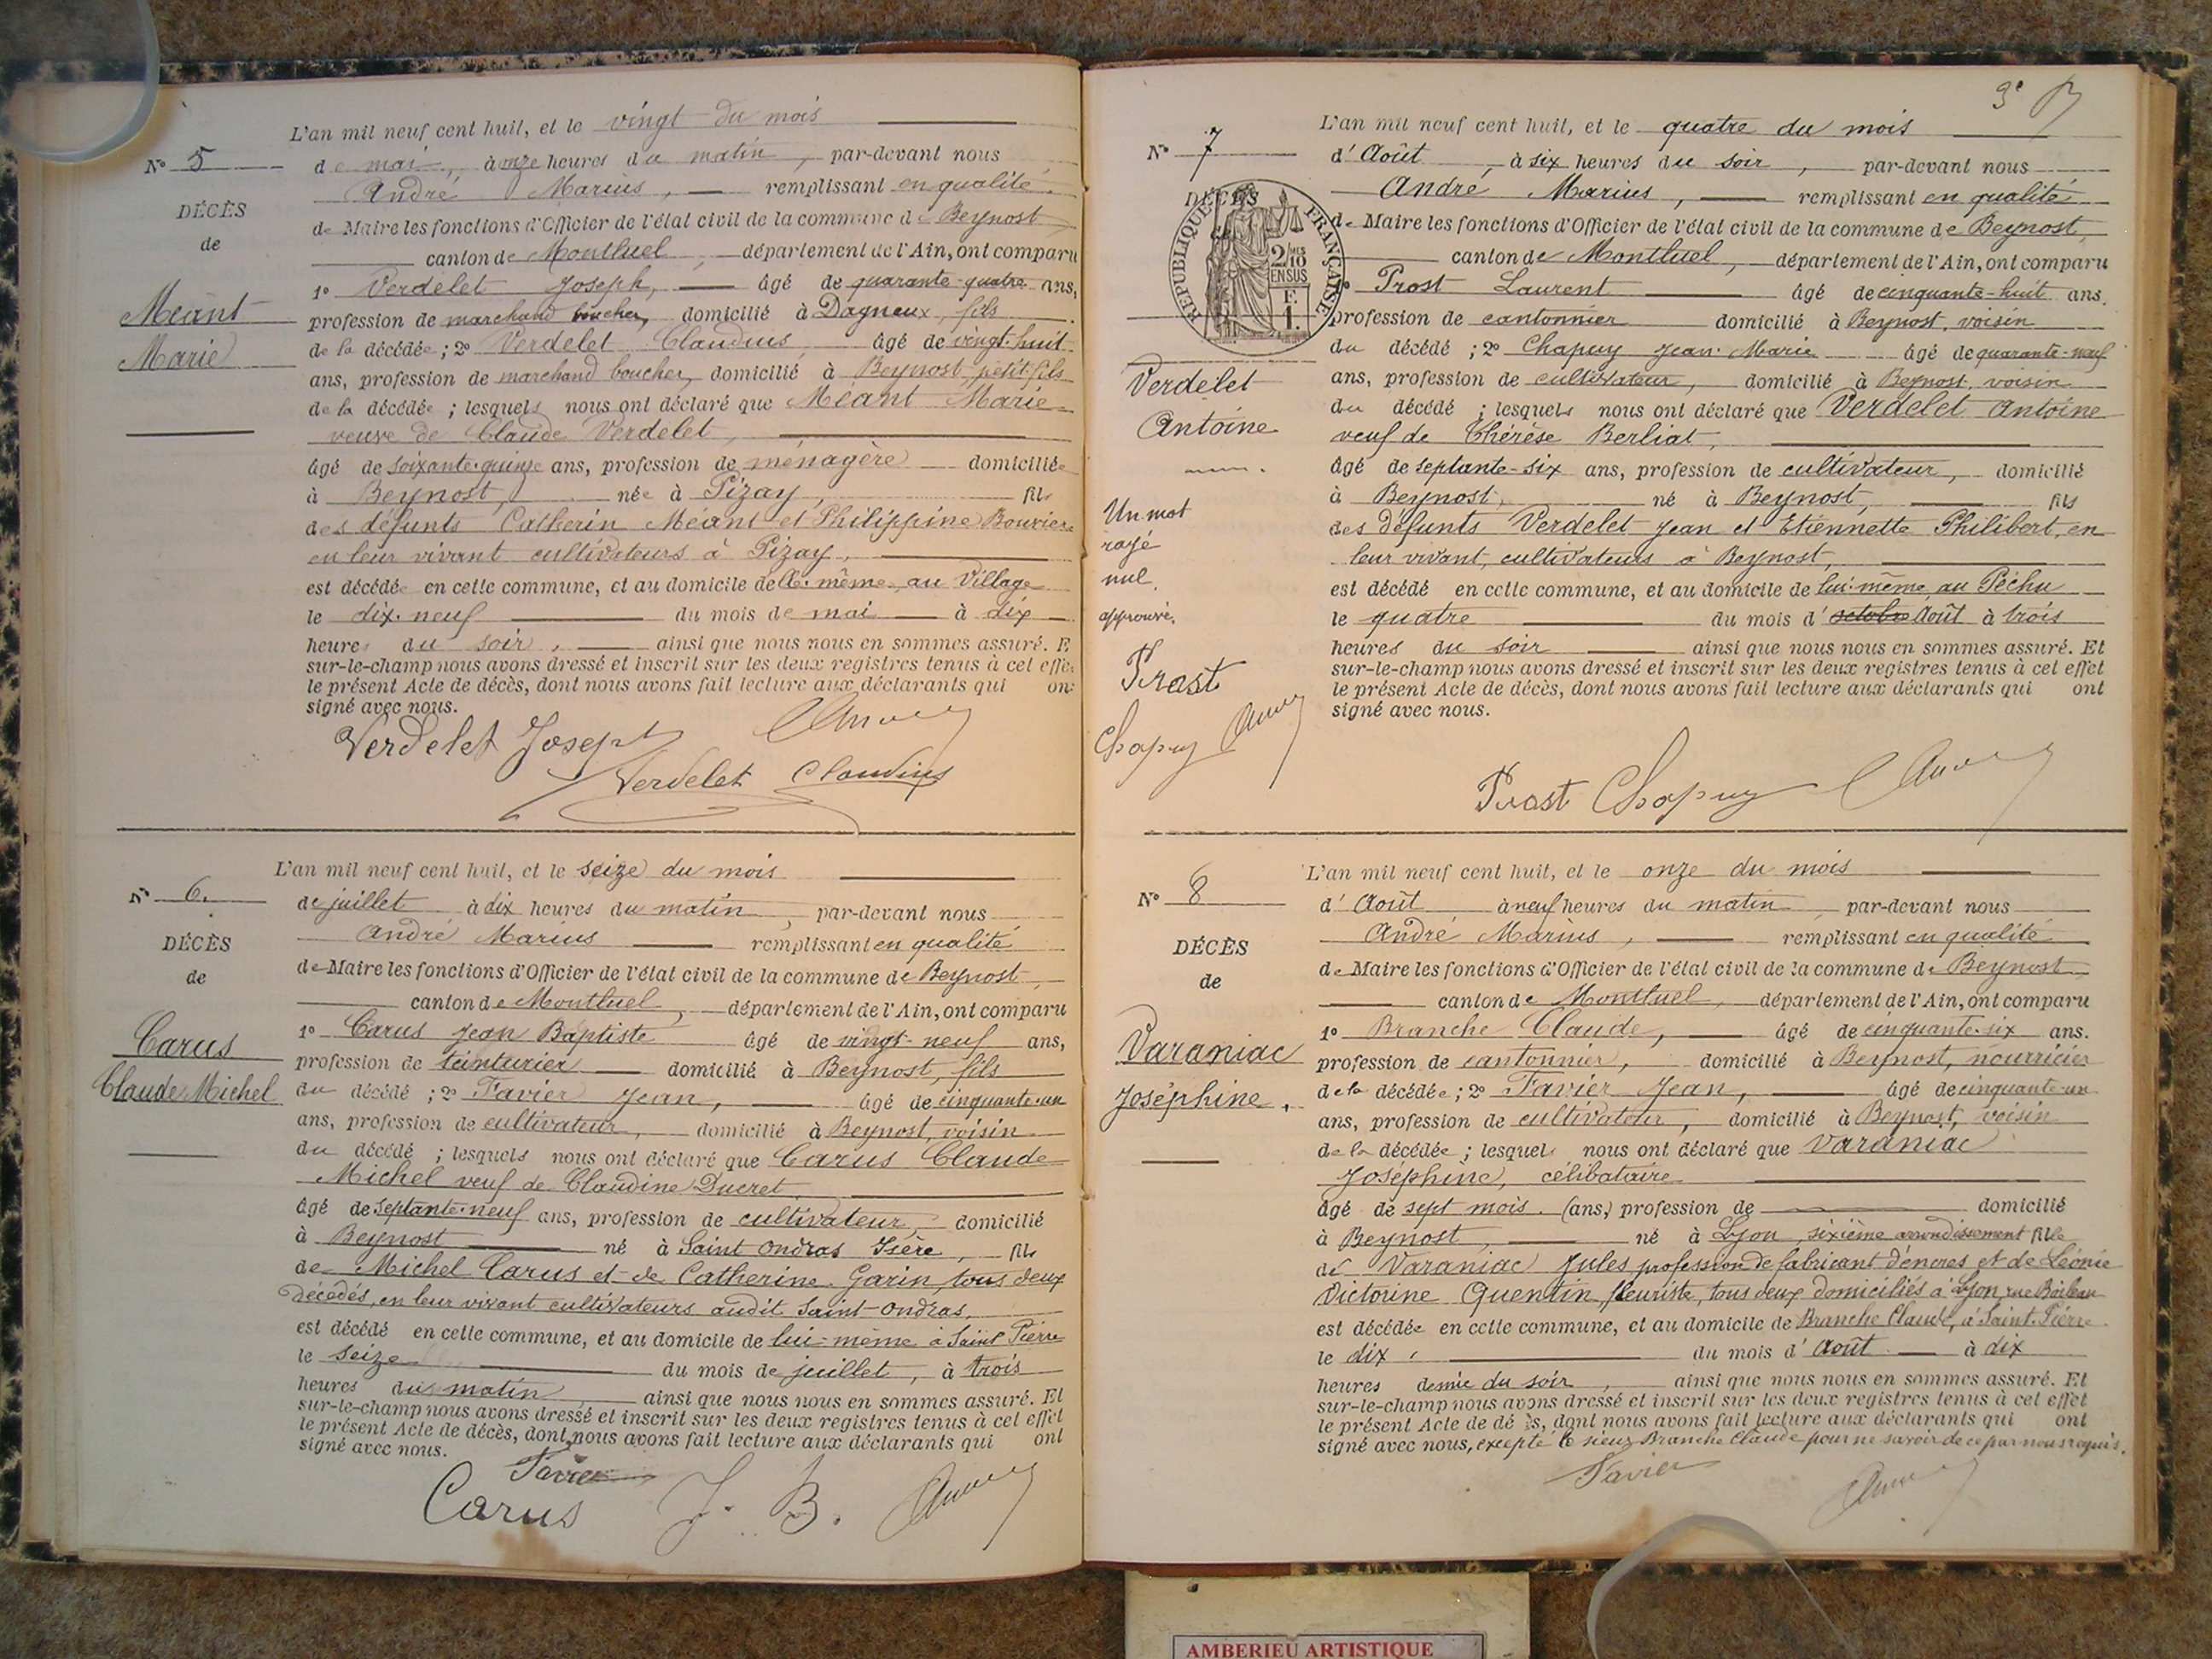 L'an mil neuf cent huit, et le vingt du mois
N° 5
de mai, à onze heures du matin, par-devant nous
André Marius, remplissant en qualité
DÉCÈS
de Maire les fonctions d'Officier de l'état civil de la commune de Beynost
de
canton de Montluel, département de l'Ain, ont comparu
1° Verdelet Joseph, âgé de quarante-quatre ans,
Méant
profession de marchand boucher, domicilié à Dagneux, fils
Marie
de la décédée ; 2° Verdelet Claudius, âgé de vingt-huit
ans, profession de marchand boucher, domicilié à Beynost, petit-fils
de la décédée ; lesquels nous ont déclaré que Méant Marie
veuve de Claude Verdelet,
âgé de soixante-quinze ans, profession de ménagère domiciliée
à Beynost, née à Pizay, fille
des défunts Catherin Méant et Philippine Bouvier
en leur vivant cultivateurs à Pizay,
est décédée en cette commune, et au domicile de elle-même, au Village
le dix-neuf du mois de mai à dix
heures du soir, ainsi que nous nous en sommes assuré. E
sur-le-champ nous avons dressé et inscrit sur les deux registres tenus à cet effe
le présent Acte de décès, dont nous avons fait lecture aux déclarants qui on
signé avec nous.
Verdelet Joseph
Verdelet Claudius
L'an mil neuf cent huit, et le seize du mois
N° 6.
de juillet à dix heures du matin, par-devant nous
André Marius remplissant en qualité
DÉCÈS
de Maire les fonctions d'Officier de l'état civil de la commune de Beynost
de
canton de Montluel, département de l'Ain, ont comparu
1° Carus Jean Baptiste âgé de vingt-neuf ans,
Carus
profession de teinturier domicilié à Beynost, fils
Claude Michel
du décédé ; 2° Favier Jean, âgé de cinquante-un
ans, profession de cultivateur, domicilié à Beynost, voisin
du décédé ; lesquels nous ont déclaré que Carus Claude
Michel veuf de Claudine Ducret
âgé de septante-neuf ans, profession de cultivateur, domicilié
à Beynost né à Saint Ondras Isère, fils
de Michel Carus et de Catherine Garin, tous deux
décédés, en leur vivant cultivateurs audit Saint-Ondras,
est décédé en cette commune, et au domicile de lui-même à Saint Pierre
le seize du mois de juillet, à trois
heures du matin, ainsi que nous nous en sommes assuré. Et
sur-le-champ nous avons dressé et inscrit sur les deux registres tenus à cet effet
le présent Acte de décès, dont nous avons fait lecture aux déclarants qui ont
signé avec nous.
Favier
Carus J. B.
3e
L'an mil neuf cent huit, et le quatre du mois
N° 7
d'Août, à six heures du soir, par-devant nous
André Marius, remplissant en qualité
DÉCÈS
RÉPUBLIQUE FRANÇAISE
2/10 EN SUS
F. 1.
de Maire les fonctions d'Officier de l'état civil de la commune de Beynost,
canton de Montluel, département de l'Ain, ont comparu
Prost Laurent âgé de cinquante-huit ans.
profession de cantonnier domicilié à Beynost, voisin
du décédé ; 2° Chapuy Jean-Marie âgé de quarante-neuf
Verdelet
ans, profession de cultivateur, domicilié à Beynost, voisin
Antoine
du décédé ; lesquels nous ont déclaré que Verdelet Antoine
veuf de Thérèse Berliat,
âgé de septante-six ans, profession de cultivateur, domicilié
à Beynost, né à Beynost, fils
Un mot
rayé
nul.
approuvé.
des défunts Verdelet Jean et Etiennette Philibert, en
leur vivant, cultivateurs à Beynost,
est décédé en cette commune, et au domicile de lui-même, au Péchu
le quatre du mois d'octobre Août à trois
heures du soir ainsi que nous nous en sommes assuré. Et
sur-le-champ nous avons dressé et inscrit sur les deux registres tenus à cet effet
le présent Acte de décès, dont nous avons fait lecture aux déclarants qui ont
signé avec nous.
Prost
Chapuy
Prost Chapuy
L'an mil neuf cent huit, et le onze du mois
N° 8
d'Août à neuf heures du matin par-devant nous
André Marius, remplissant en qualité
DÉCÈS
de Maire les fonctions d'Officier de l'état civil de la commune de Beynost
de
canton de Montluel, département de l'Ain, ont comparu
1° Branche Claude, âgé de cinquante-six ans.
Varaniac
profession de cantonnier, domicilié à Beynost, nourricier
Joséphine,
de la décédée ; 2° Favier Jean, âgé de cinquante-un
ans, profession de cultivateur, domicilié à Beynost, voisin
de la décédée ; lesquels nous ont déclaré que Varaniac
Joséphine, célibataire
âgé de sept mois. (ans,) profession de domicilié
à Beynost, né à Lyon, sixième arrondissement fille
de Varaniac Jules profession de fabricant d'encres et de Léonie
Victorine Quentin fleuriste, tous deux domiciliés à Lyon, rue Boileau
est décédée en cette commune, et au domicile de Branche Claude, à Saint-Pierre
le dix du mois d'Août à dix
heures demie du soir, ainsi que nous nous en sommes assuré. Et
sur-le-champ nous avons dressé et inscrit sur les deux registres tenus à cet effet
le présent Acte de décès, dont nous avons fait lecture aux déclarants qui ont
signé avec nous, excepté le sieur Branche Claude pour ne savoir de ce par nous requis.
Favier
AMBERIEU ARTISTIQUE